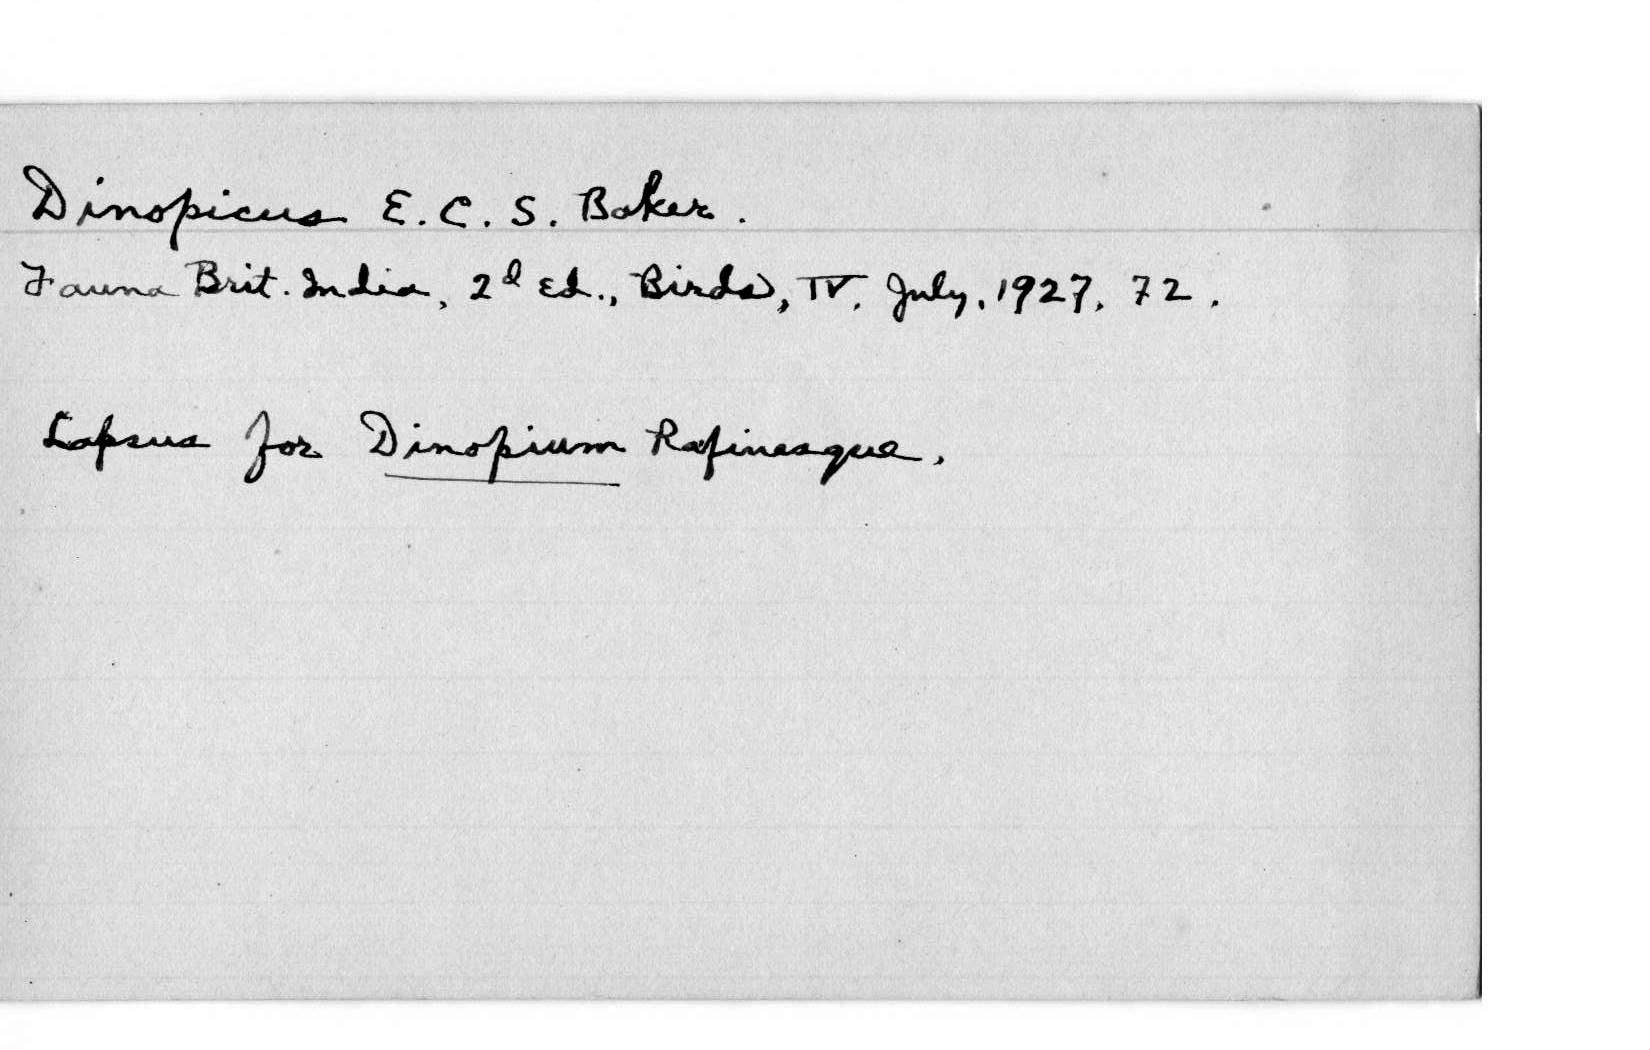 Dinopicus E. C. S. Baker.
Fauna Brit. India, 2d Ed., Birds, IV, July, 1927, 72.
Lapsus for Dinopium Rafinesque.